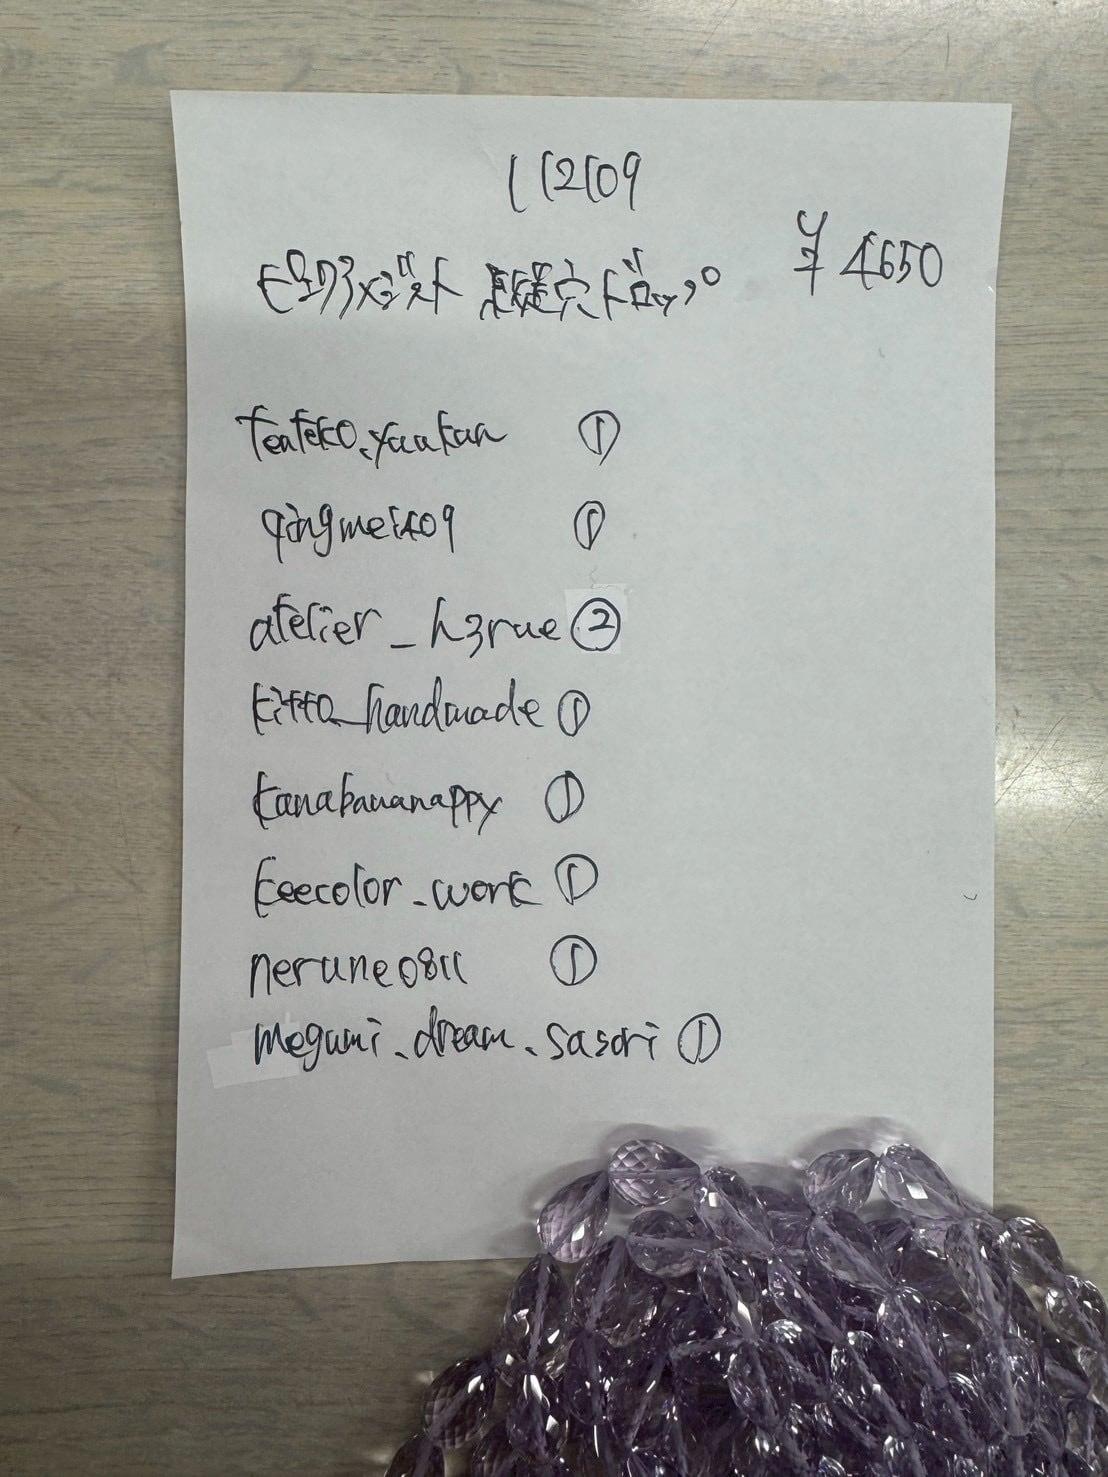 112109
¥4650
ピンクアメジスト 縦穴ドロップ
teateko.yuukan
qingmei409
atelier_h3rue ②
kitto_handmade ①
kanabananappy ①
keecolor_work ①
nerune0811 ①
megumi.dream.sasori ①